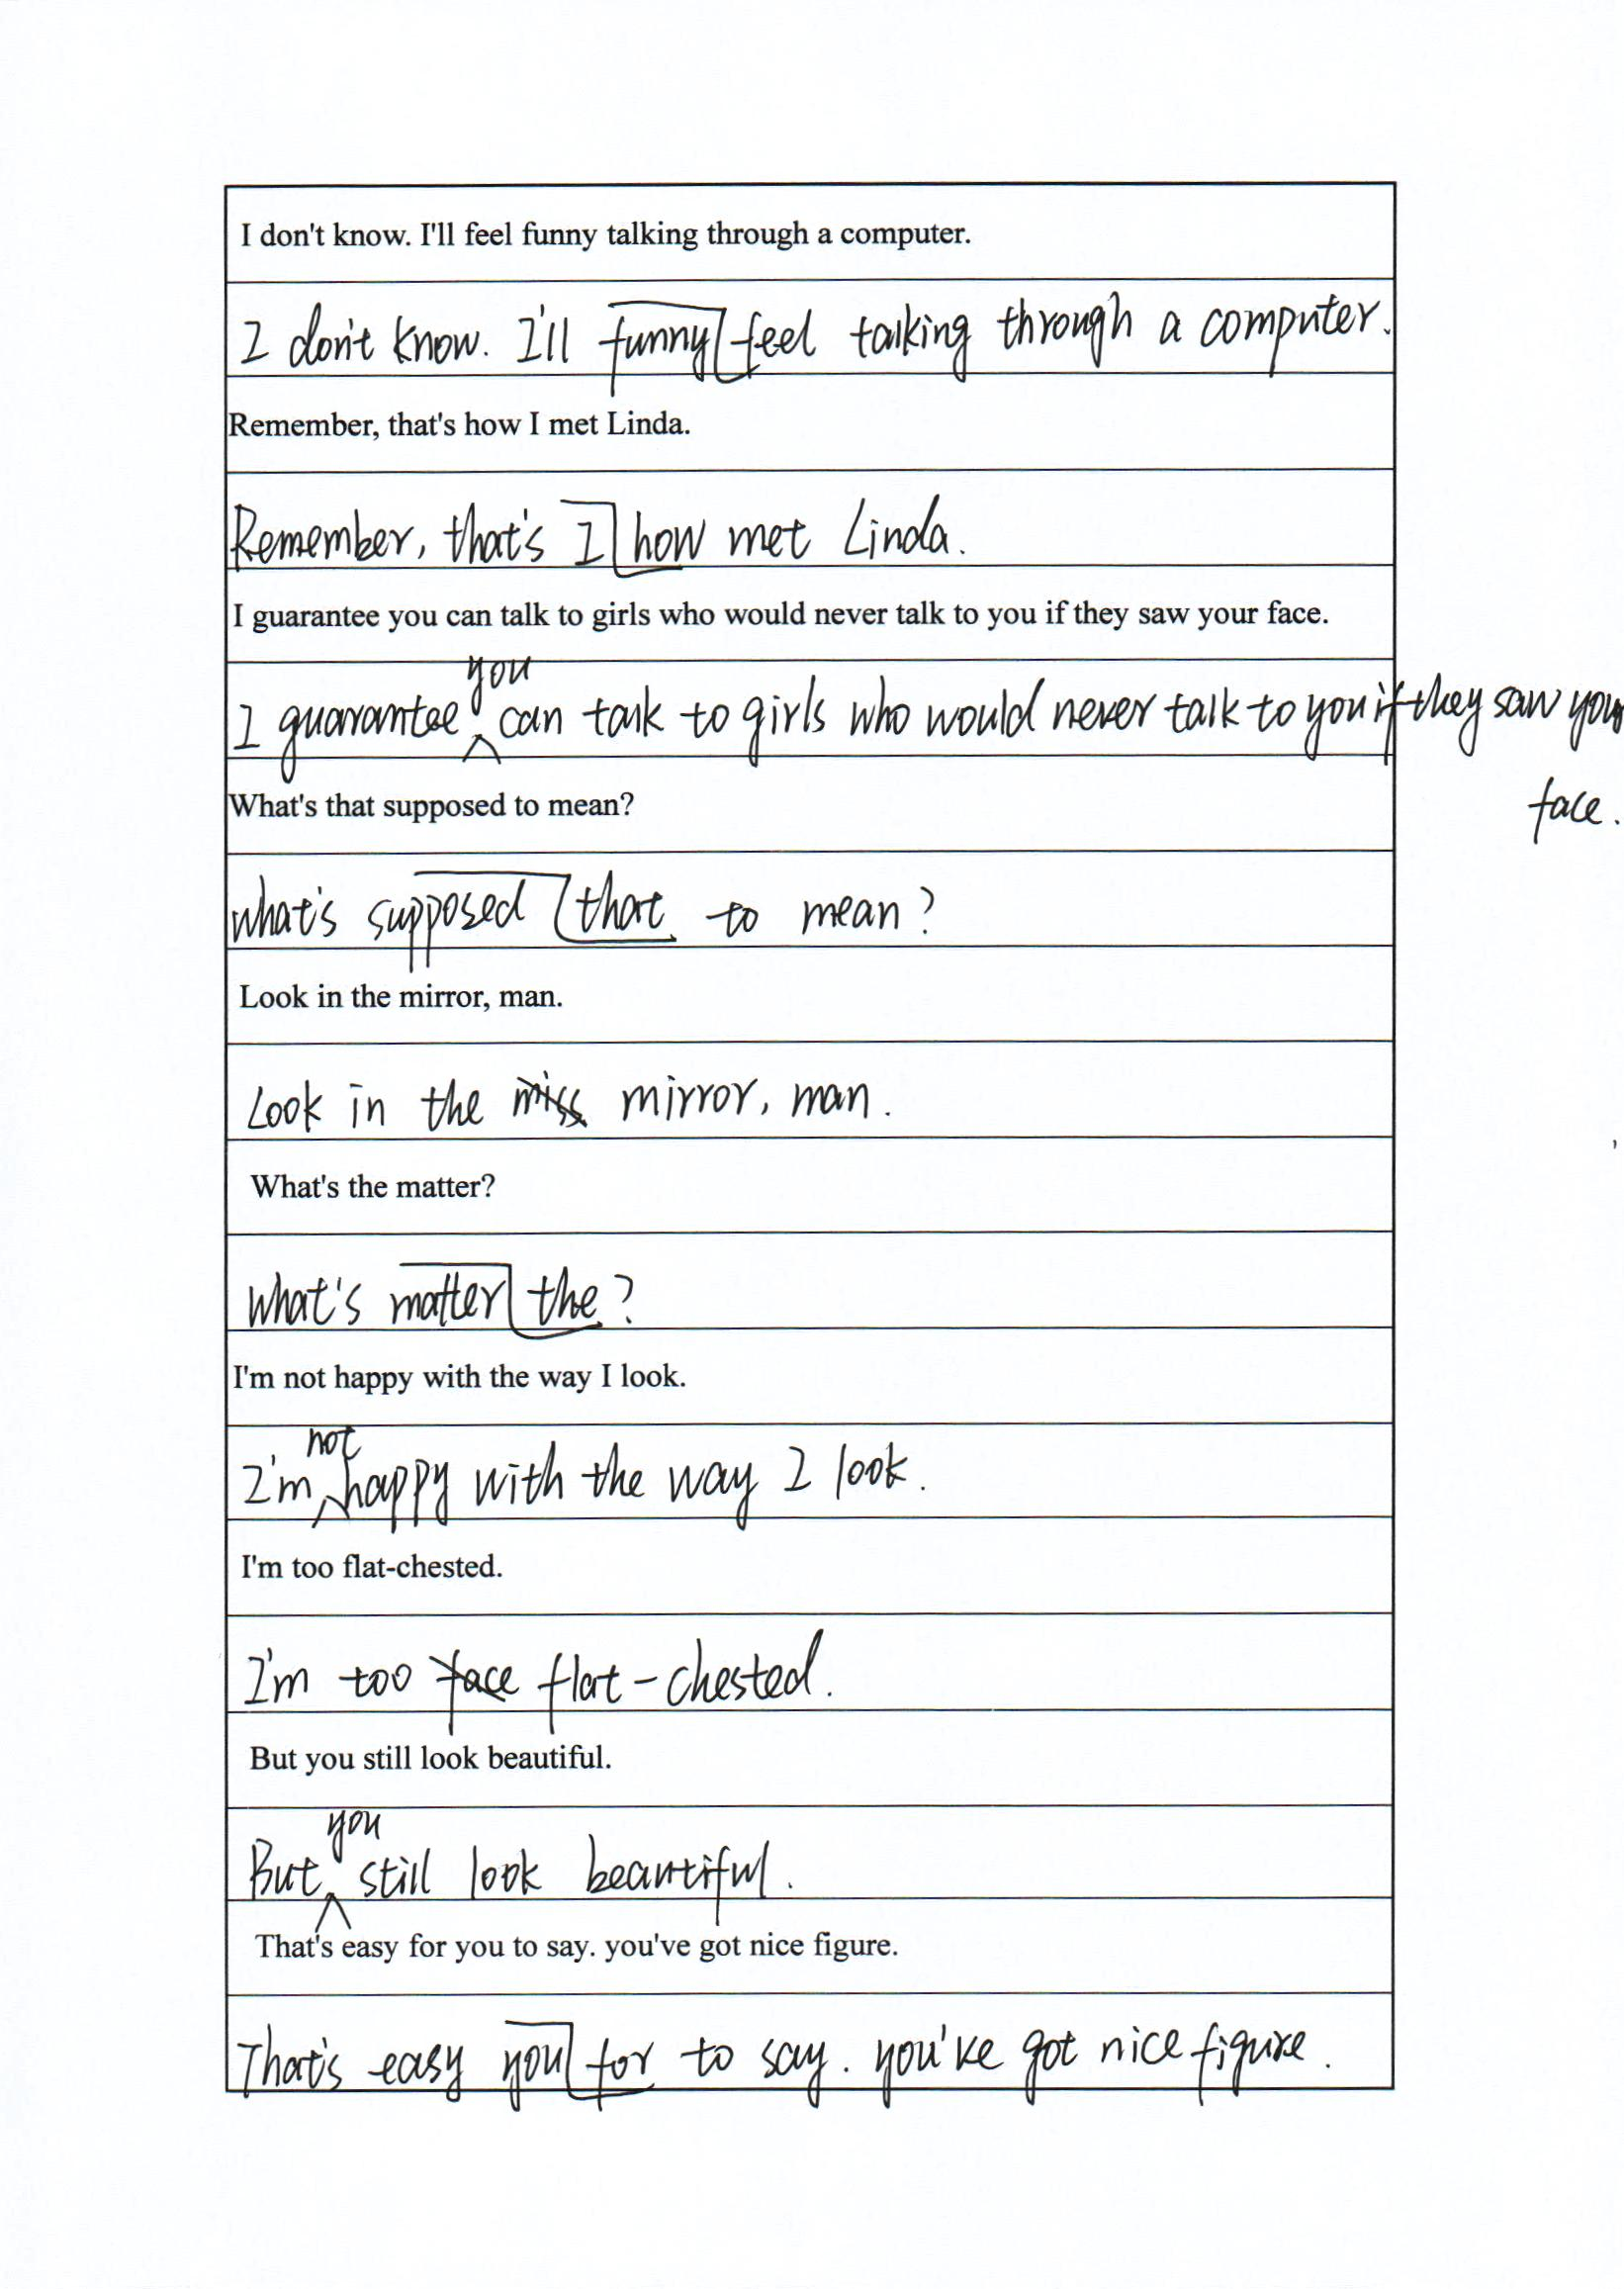 I don't know. I'll feel funny talking through a computer.
I don't know. I'll funny feel talking through a computer.
Remember, that's how I met Linda.
Remember, that's I how met Linda.
I guarantee you can talk to girls who would never talk to you if they saw your face.
I guarantee you can talk to girls who would never talk to you if they saw your
face.
What's that supposed to mean?
What's supposed that to mean?
Look in the mirror, man.
Look in the miss mirror, man.
What's the matter?
What's matter the?
I'm not happy with the way I look.
I'm not happy with the way I look.
I'm too flat-chested.
I'm too face flat-chested.
But you still look beautiful.
But you still look beautiful.
That's easy for you to say. you've got nice figure.
That's easy you for to say. you've got nice figure.